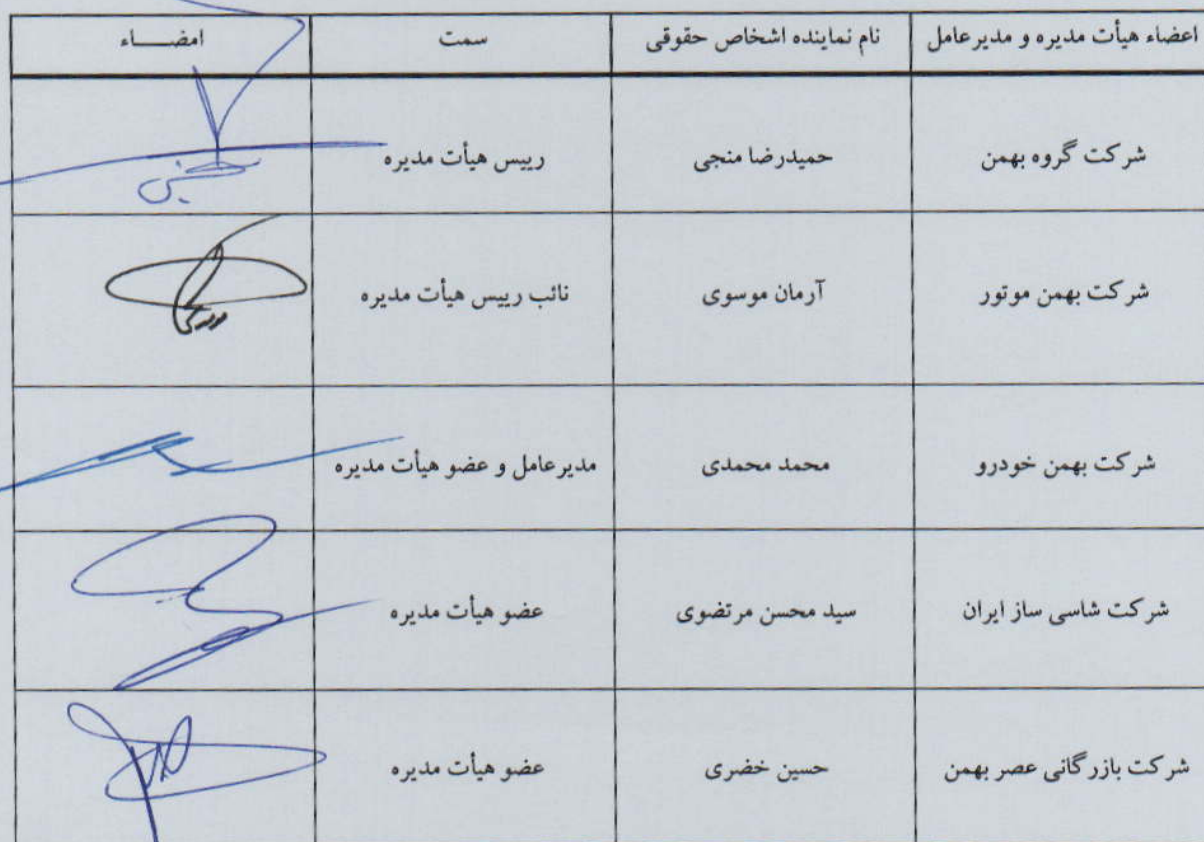 اعضاء هیأت مدیره و مدیرعامل نام نماینده اشخاص حقوقی سمت امضـــاء
شرکت گروه بهمن حمیدرضا منجی رییس هیأت مدیره
شرکت بهمن موتور آرمان موسوی نائب رییس هیأت مدیره
شرکت بهمن خودرو محمد محمدی مدیرعامل و عضو هیأت مدیره
شرکت شاسی ساز ایران سید محسن مرتضوی عضو هیأت مدیره
شرکت بازرگانی عصر بهمن حسین خضری عضو هیأت مدیره